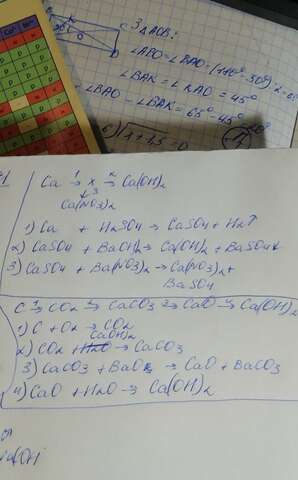 C
3) △AOB:
∠ABO = ∠BAO =
D
∠BAK = ∠KAD = 45°
= ∠BAO - ∠BAK = 65° - 45°
б)
= 0
Ca 1→ x 2→ Ca(OH)₂
↓3
Ca(NO₃)₂
1) Ca + H₂SO₄ → CaSO₄ + H₂↑
2) CaSO₄ + Ba(OH)₂ → Ca(OH)₂ + BaSO₄↓
3) CaSO₄ + Ba(NO₃)₂ → Ca(NO₃)₂ +
BaSO₄
C 1→ CO₂ 2→ CaCO₃ 3→ CaO 4→ Ca(OH)₂
1) C + O₂ → CO₂
Ca(OH)₂
2) CO₂ + H₂O → CaCO₃
3) CaCO₃ + BaO → CaO + BaCO₃
4) CaO + H₂O → Ca(OH)₂